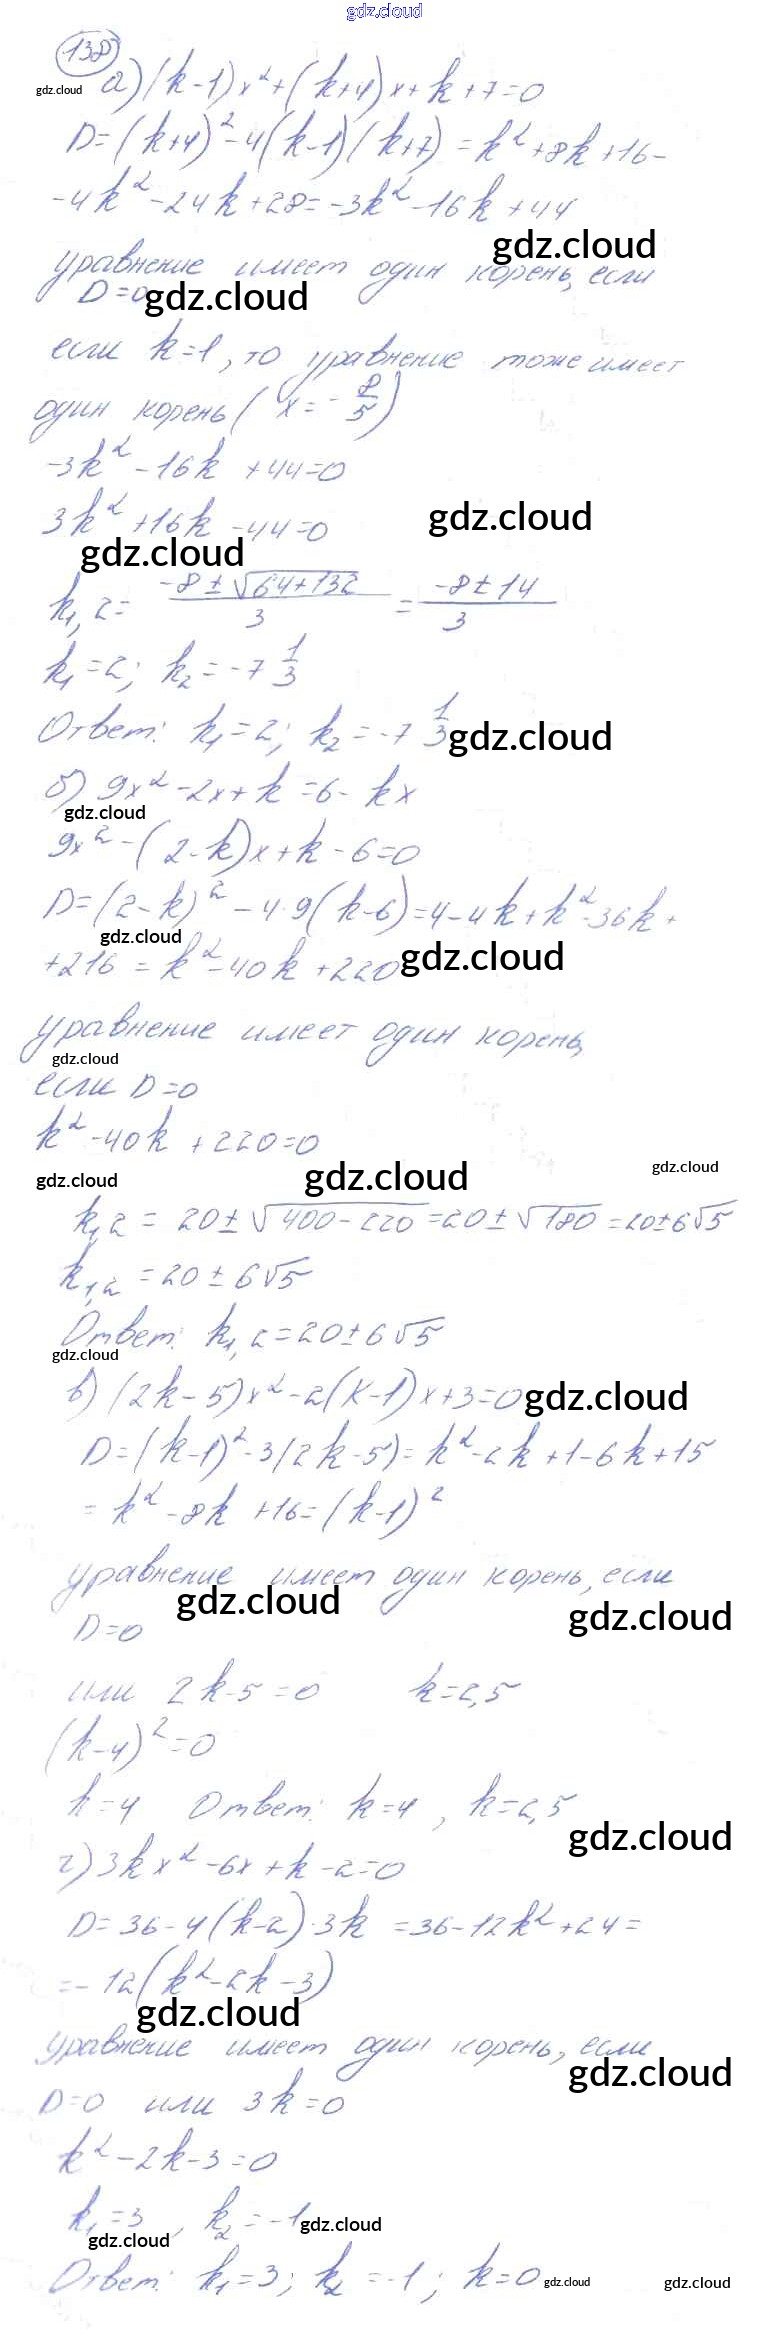 gdz.cloud
138
а) (k-1)x²+(k+4)x+k+7=0
gdz.cloud
D=(k+4)²-4(k-1)(k+7)=k²+8k+16-
-4k²-24k+28=-3k²-16k+44
gdz.cloud
уравнение имеет один корень, если
D=0
gdz.cloud
если k=1, то уравнение тоже имеет
один корень (x=-8/5)
-3k²-16k+44=0
3k²+16k-44=0
gdz.cloud
gdz.cloud
k₁,₂=(-8±√(64+132))/3=(-8±14)/3
k₁=2; k₂=-7 1/3
Ответ: k₁=2; k₂=-7 1/3
gdz.cloud
б) 9x²-2x+k=6-kx
gdz.cloud
9x²-(2-k)x+k-6=0
D=(2-k)²-4·9(k-6)=4-4k+k²-36k+
gdz.cloud
+216=k²-40k+220
gdz.cloud
уравнение имеет один корень,
gdz.cloud
если D=0
k²-40k+220=0
gdz.cloud
gdz.cloud
gdz.cloud
k₁,₂=20±√(400-220)=20±√180=20±6√5
k₁,₂=20±6√5
Ответ: k₁,₂=20±6√5
gdz.cloud
в) (2k-5)x²-2(k-1)x+3=0
gdz.cloud
D=(k-1)²-3(2k-5)=k²-2k+1-6k+15
=k²-8k+16=(k-1)²
уравнение имеет один корень, если
gdz.cloud
gdz.cloud
D=0
или 2k-5=0 k=2,5
(k-4)²=0
k=4 Ответ: k=4, k=2,5
gdz.cloud
г) 3kx²-6x+k-2=0
D=36-4(k-2)·3k=36-12k²+24=
=-12(k²-2k-3)
gdz.cloud
уравнение имеет один корень, если
gdz.cloud
D=0 или 3k=0
k²-2k-3=0
k₁=3, k₂=-1
gdz.cloud
gdz.cloud
Ответ: k₁=3; k₂=-1; k=0
gdz.cloud
gdz.cloud